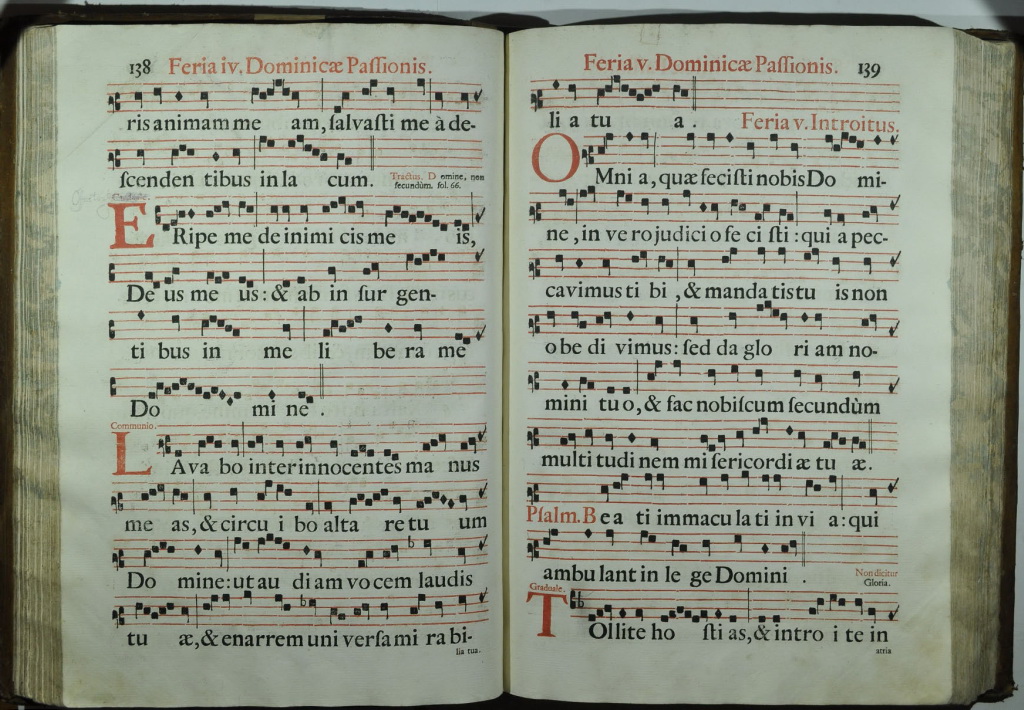 138 Feria iv. Dominicæ Paſſionis.
ris animam me am, ſalvaſti me à de-
ſcenden tibus in la cum. Tractus. D omine, non
ſecundùm. fol. 66.
Graduale.
ERipe me de inimi cis me is,
De us me us: & ab in ſur gen-
ti bus in me li be ra me
Do mi ne.
Communio.
LAva bo inter innocentes ma nus
me as, & circu i bo alta re tu um
Do mine: ut au diam vocem laudis
tu æ, & enarrem uni verſa mi ra bi-
lia tua.
Feria v. Dominicæ Paſſionis. 139
li a tu a. Feria v. Introitus.
OMni a, quæ feciſti nobis Do mi-
ne, in ve ro judicio fe ci ſti: qui a pec-
cavimus ti bi, & manda tis tu is non
obe di vimus: ſed da glo ri am no-
mini tuo, & fac nobiſcum ſecundùm
multi tudi nem mi ſericordi æ tu æ.
Pſalm. Be a ti immacu la ti in vi a: qui
ambu lant in le ge Domini. Non dicitur
Gloria.
Graduale.
TOllite ho ſti as, & intro i te in
atria